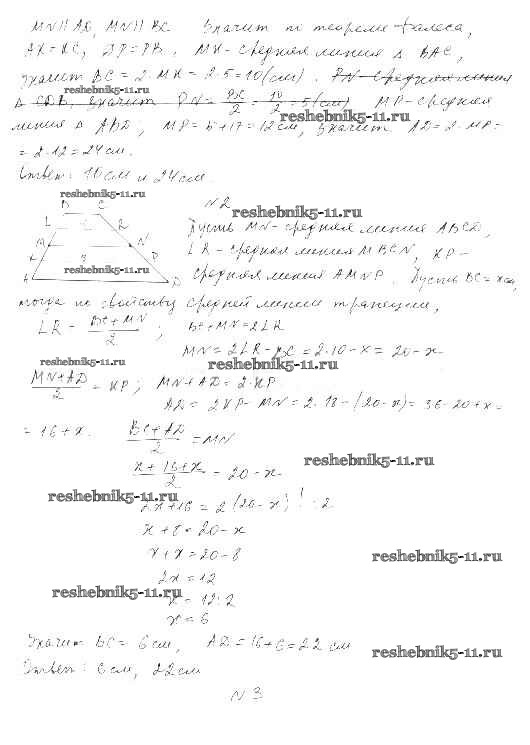 MN || AD, MN || BC. Значит по теореме Фалеса,
AK = KC, DP = PB. MK - средняя линия Δ BAC,
значит BC = 2·MK = 2·5 = 10 (см). PN - средняя линия
Δ CDB, значит PN = BC/2 = 10/2 = 5 (см) MP - средняя
reshebnik5-11.ru
линия Δ ABD, MP = 5+17 = 12 см, значит AD = 2·MP =
= 2·12 = 24 см.
Ответ: 10 см и 24 см.
reshebnik5-11.ru
B C
L R
M N
K P
A D
reshebnik5-11.ru
N 2
reshebnik5-11.ru
Пусть MN - средняя линия ABCD,
LR - средняя линия MBCN, KP -
средняя линия AMND. Пусть BC = x см,
тогда по свойству средней линии трапеции,
LR = BC + MN / 2 ; BC + MN = 2LR
MN = 2LR - BC = 2·10 - x = 20 - x
reshebnik5-11.ru
reshebnik5-11.ru
MN + AD / 2 = KP ; MN + AD = 2·KP
AD = 2KP - MN = 2·18 - (20 - x) = 36 - 20 + x =
= 16 + x. BC + AD / 2 = MN
x + 16 + x / 2 = 20 - x
reshebnik5-11.ru
reshebnik5-11.ru
2x + 16 = 2 (20 - x) | : 2
x + 8 = 20 - x
x + x = 20 - 8
reshebnik5-11.ru
2x = 12
reshebnik5-11.ru
x = 12 : 2
x = 6
Значит BC = 6 см, AD = 16 + 6 = 22 см
reshebnik5-11.ru
Ответ: 6 см, 22 см
N 3